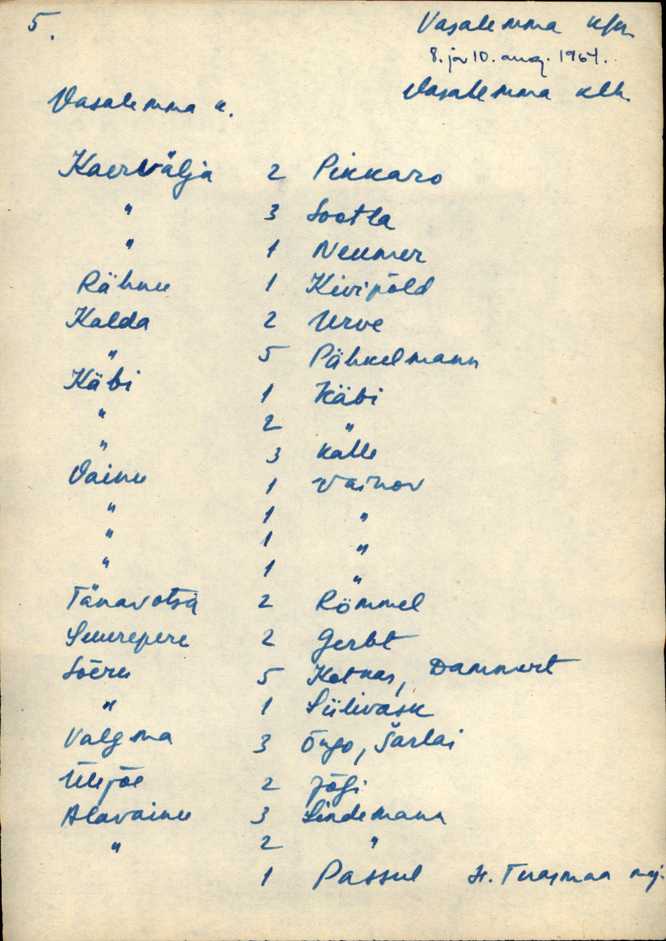 5.
Vasalemma k/n.
8. ja 10. aug. 1964.
Vasalemma klk.
Vasalemma k.
Kaervälja 2 Pikkaro
" 3 Sootla
" 1 Neumer
Rähnu 1 Kivipõld
Kalda 2 Urve
" 5 Pähkelmann
Käbi 1 Käbi
" 2 "
" 3 Kalle
Vainu 1 Vainov
" 1 "
" 1 "
" 1 "
Tänavotsa 2 Römmel
Suurepere 2 Gerbt
Sõeru 5 Kotkas, Dammert
" 1 Siilivask
Valgma 3 Õngo, Šarlai
Ülejõe 2 Jõgi
Alavainu 3 Lindemann
" 2 "
1 Passul H. Tuasmaa